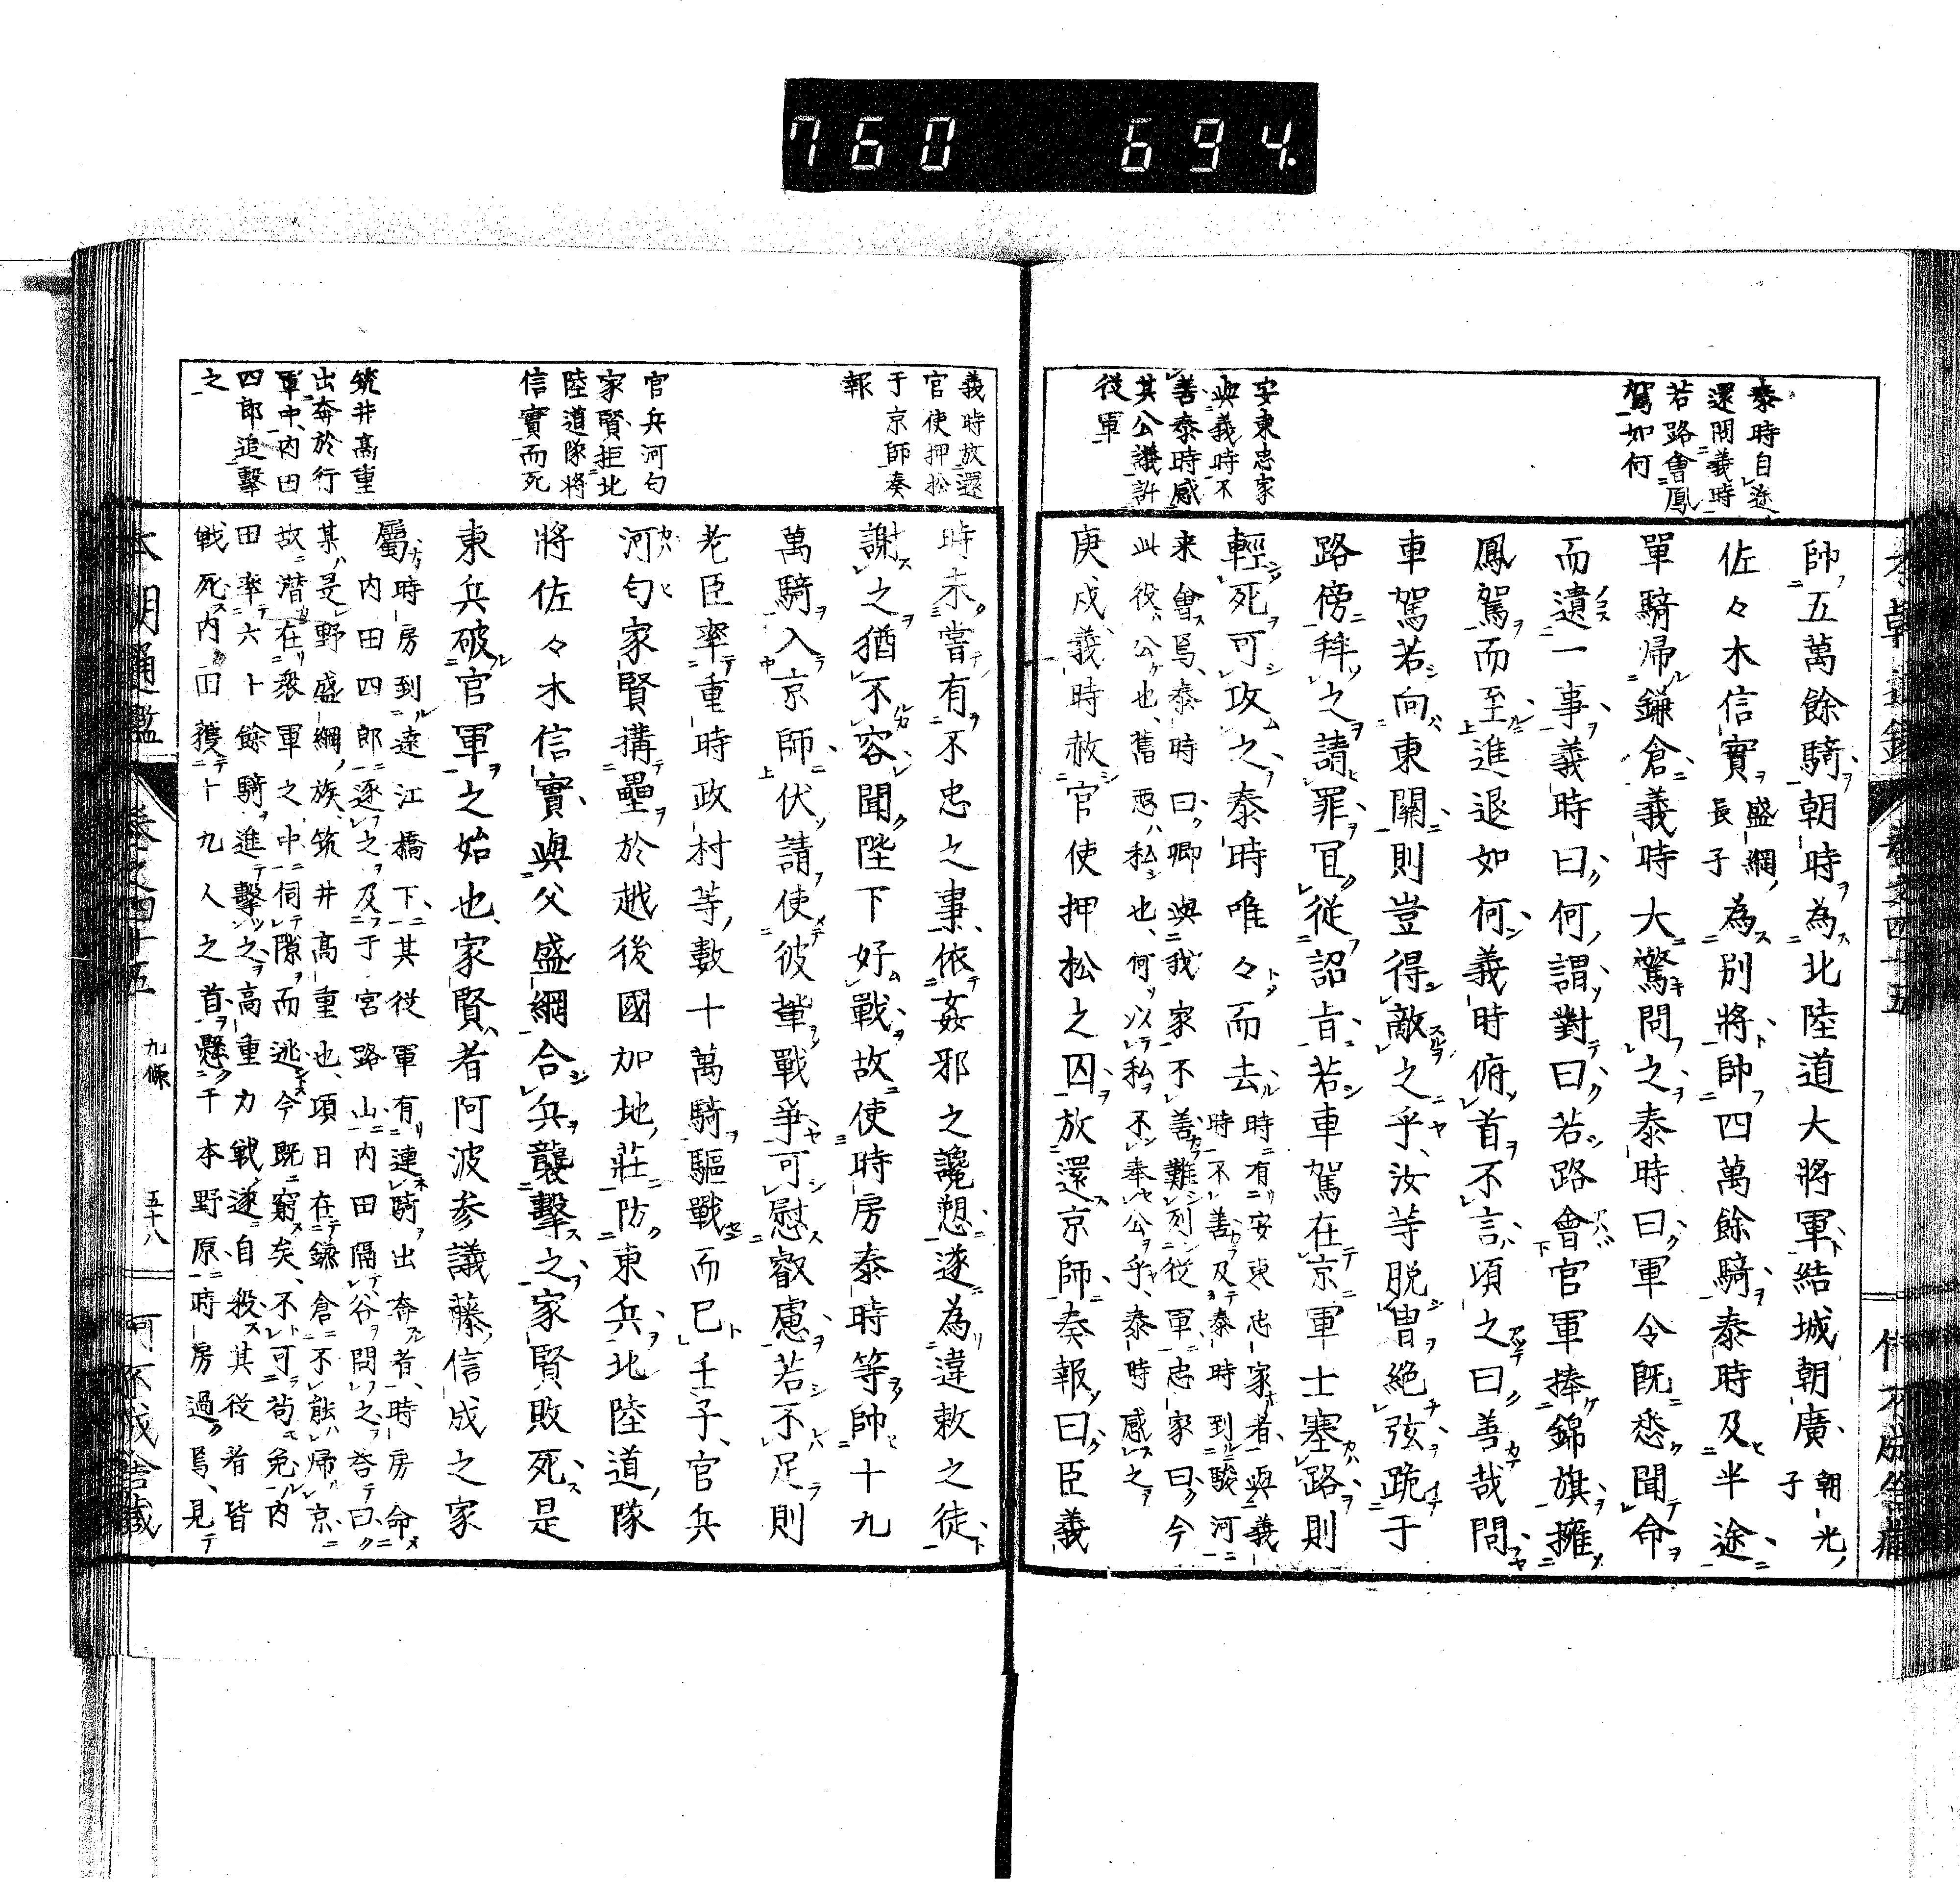 760 694.
泰時自途
還問義時
若路會鳳
駕如何
安東忠家
與義時不
善泰時感
其公議許
從軍
帥五萬餘騎朝時為北陸道大將軍結城朝廣朝光子
佐々木信實盛綱長子為別將帥四萬餘騎泰時及半途
單騎帰鎌倉義時大驚問之泰時曰軍令既悉聞命
而遺一事義時曰何謂對曰若路會官軍捧錦旗擁
鳳駕而至進退如何義時俯首不言頃之曰善哉問
車駕若向東關則豈得敵之乎汝等脱冑絶弦跪于
路傍拜之請罪冝從詔旨若車駕在京軍士塞路則
輕死可攻之泰時唯々而去時有安東忠家者與義
時不善及泰時到駿河
来會焉泰時曰卿與我家不善難列從軍忠家曰今
此役公也舊惡私也何以私不奉公乎泰時感之
庚戌義時赦官使押松之囚放還京師奏報曰臣義
義時放還
官使押松
于京師奏
報
官兵河匂
家賢拒北
陸道隊將
信實而死
筑井髙重
出奔於行
軍中内田
四郎追擊
之
時未嘗有不忠之事依姦邪之讒愬遂為違敕之徒
謝之猶不容聞陛下好戰故使時房泰時等帥十九
萬騎入京師伏請使彼輩戰爭可慰叡慮若不足則
老臣率重時政村等數十萬騎驅戰而已壬子官兵
河匂家賢搆壘於越後國加地莊防東兵北陸道隊
將佐々木信實與父盛綱合兵襲擊之家賢敗死是
東兵破官軍之始也家賢者阿波参議藤信成之家
屬時房到遠江橋下其從軍有連騎出奔者時房命
内田四郎逐之及于宮路山内田隔谷問之答曰
某是野盛綱族筑井髙重也項日在鎌倉不能帰京
故潜在衆軍之中伺隙而逃今既窮矣不可苟免内
田率六十餘騎進擊之髙重力戦遂自殺其從者皆
戦死内田獲十九人之首懸千本野原時房過焉見
本朝通鑑 卷之四十五 九條 五十八